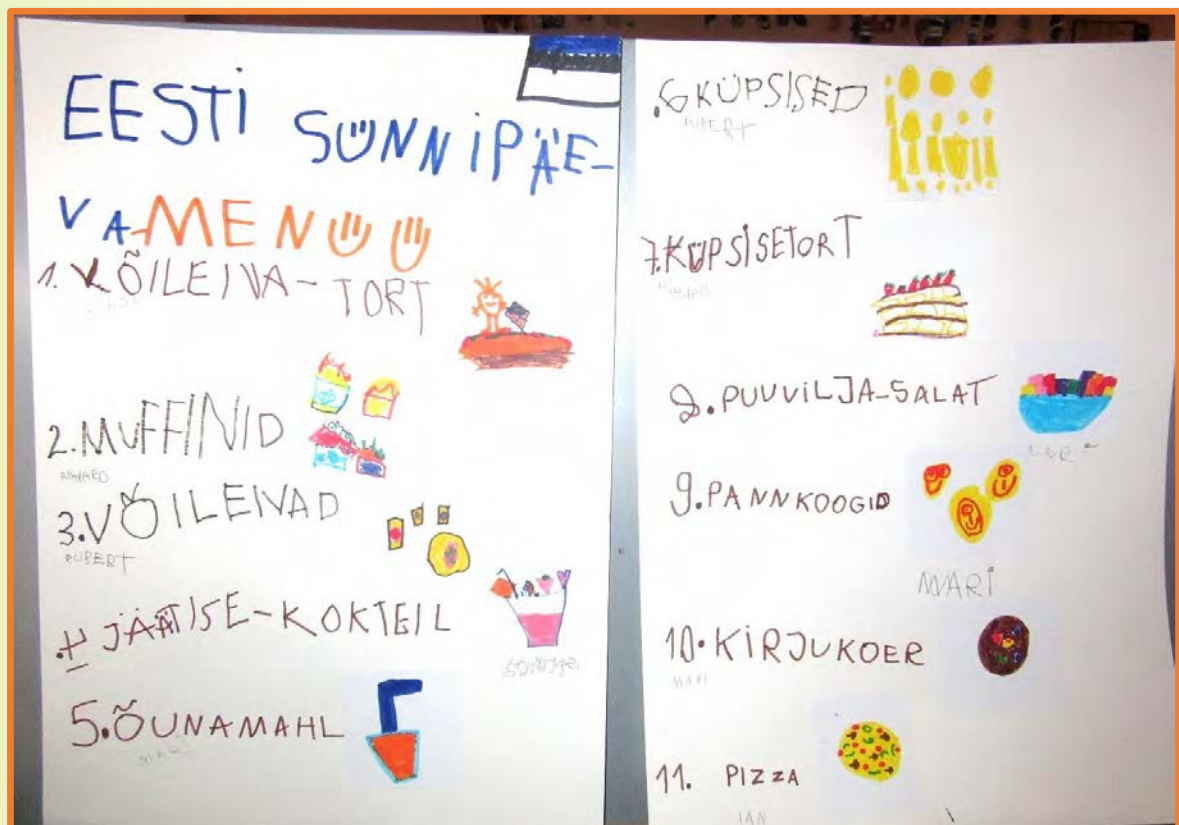 EESTI SÜNNIPÄE-
VA-MENÜÜ
1. VÕILEIVA-TORT
2. MUFFINID
RIHARD
3. VÕILEIVAD
RUBERT
.4 JÄÄTISE-KOKTEIL
5. ÕUNAMAHL
.6 KÜPSISED
RUBERT
7. KÜPSISETORT
RIHARD
8. PUUVILJA-SALAT
9. PANNKOOGID
MARI
10. KIRJUKOER
MARI
11. PIZZA
IAN